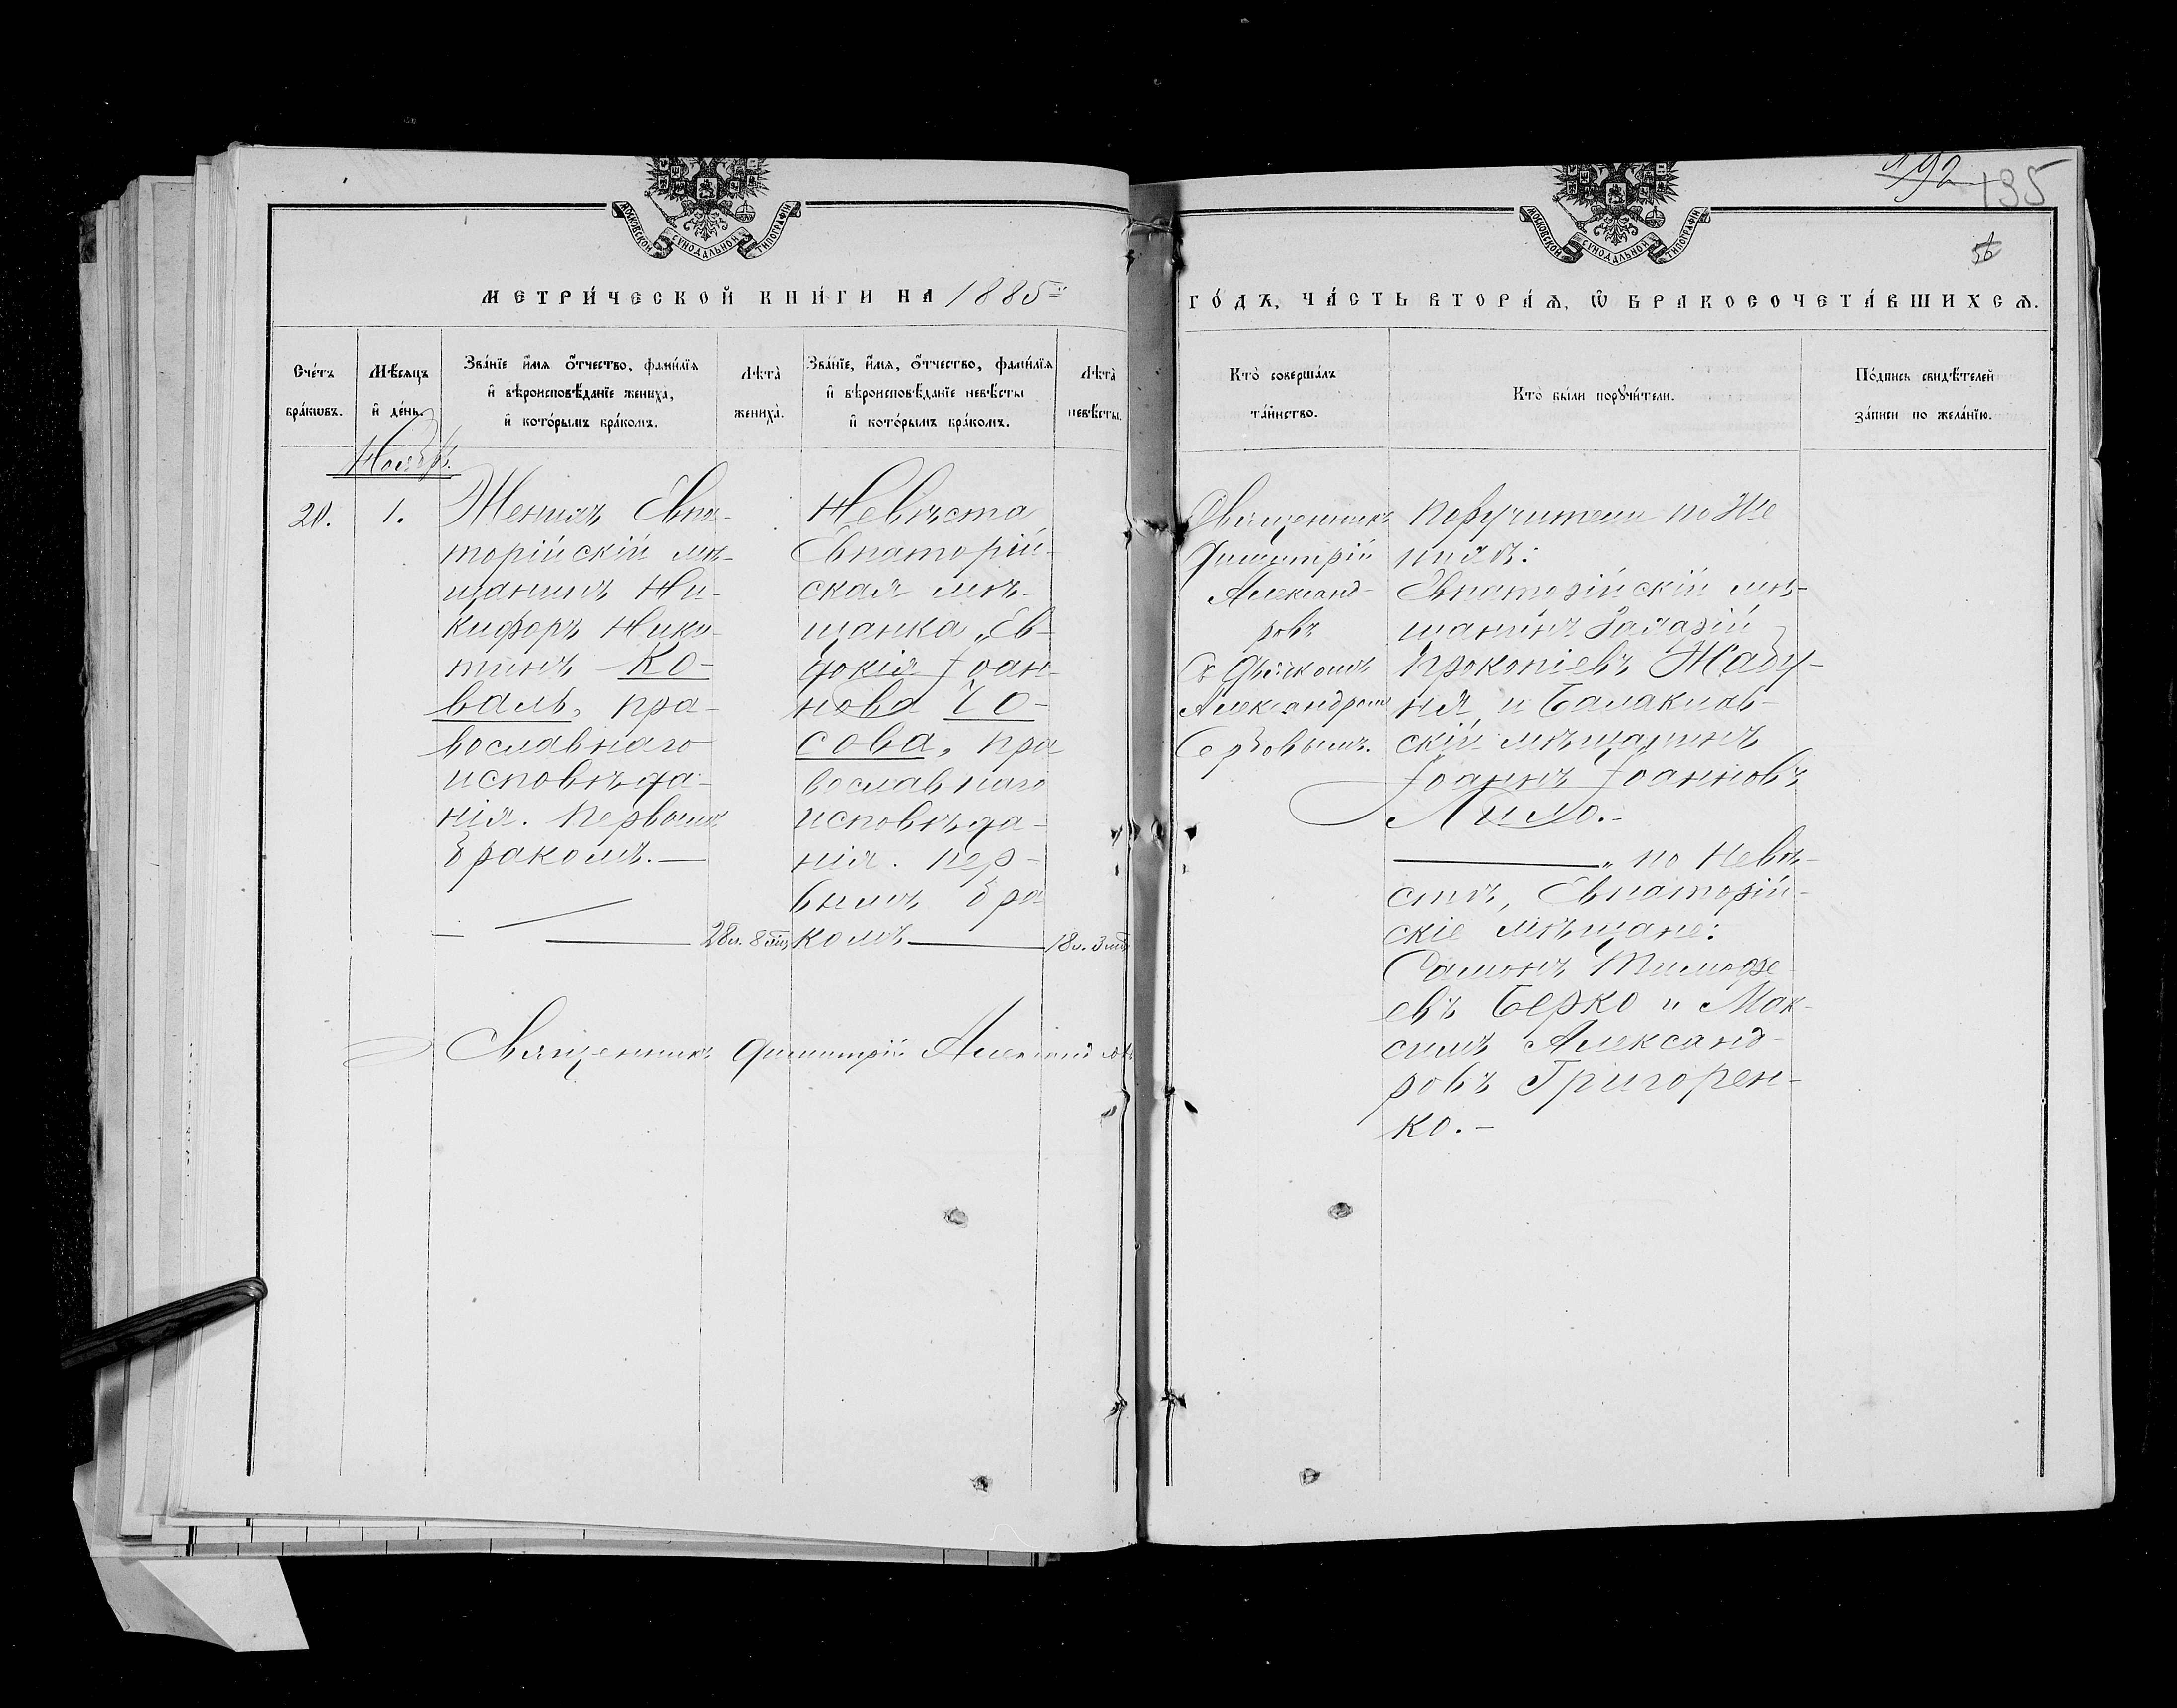 192 135
56
МОСКОВСКОЙ СѴНОДАЛЬНОЙ ТИПОГРАФІИ
МОСКОВСКОЙ СѴНОДАЛЬНОЙ ТИПОГРАФІИ
МЕТРИ́ЧЕСКОЙ КНИ́ГИ НА 1885й
ГО́ДЪ, ЧА́СТЬ ВТОРА́Я, Ѡ БРАКОСОЧЕТА́ВШИХСЯ.
Сче́тъ
бра́кѡвъ.
Мѣ́сяцъ
и҆ де́нь.
Зва́нїе и҆́мя ѻ҆́тчество, фами́лїя
и҆ вѣроисповѣ́данїе жениха̀,
и҆ кото́рымъ бра́комъ.
Лѣта̀
жениха̀.
Зва́нїе, и҆́мя, ѻ҆́тчество, фами́лїя
и҆ вѣроисповѣ́данїе невѣ́сты
и҆ кото́рымъ бра́комъ.
Лѣта̀
невѣ́сты.
Кто̀ соверша́лъ
та́инство.
Кто̀ бы́ли порꙋчи́тели.
По́дпись свидѣ́телей
за́писи по жела́нїю.
Ноябрь.
20.
1.
Женихъ Евпа-
торійскій мѣ-
щанинъ Ни-
кифоръ Ники-
тинъ Ко-
валь, пра-
вославнаго
исповѣда-
нія. Первымъ
бракомъ.—
28л. 8 мѣс
Невѣста
Евпаторій-
ская мѣ-
щанка, Ев-
докія Іоан-
нова Чо-
сова, пра
вославнаго
исповѣда-
нія. Пер-
вымъ бра
комъ
18л. 3 мѣс
Священникъ Димитрій Александровъ
Священникъ
Димитрій
Александ-
ровъ
Съ Дьякомъ
Александромъ
Сербовымъ.
Поручители по Же
нихѣ:
Евпаторійскій мѣ-
щанинъ
Прокопіевъ Жабу-
ня и Балаклав-
скій мѣщанинъ
Іоаннъ Іоанновъ
Лило.-
" по Невѣ-
стѣ, Евпаторій-
скіе мѣщане:
Самонъ Тимофе-
евъ Берко и Мак-
симъ Александ-
ровъ Григорен-
ко.-